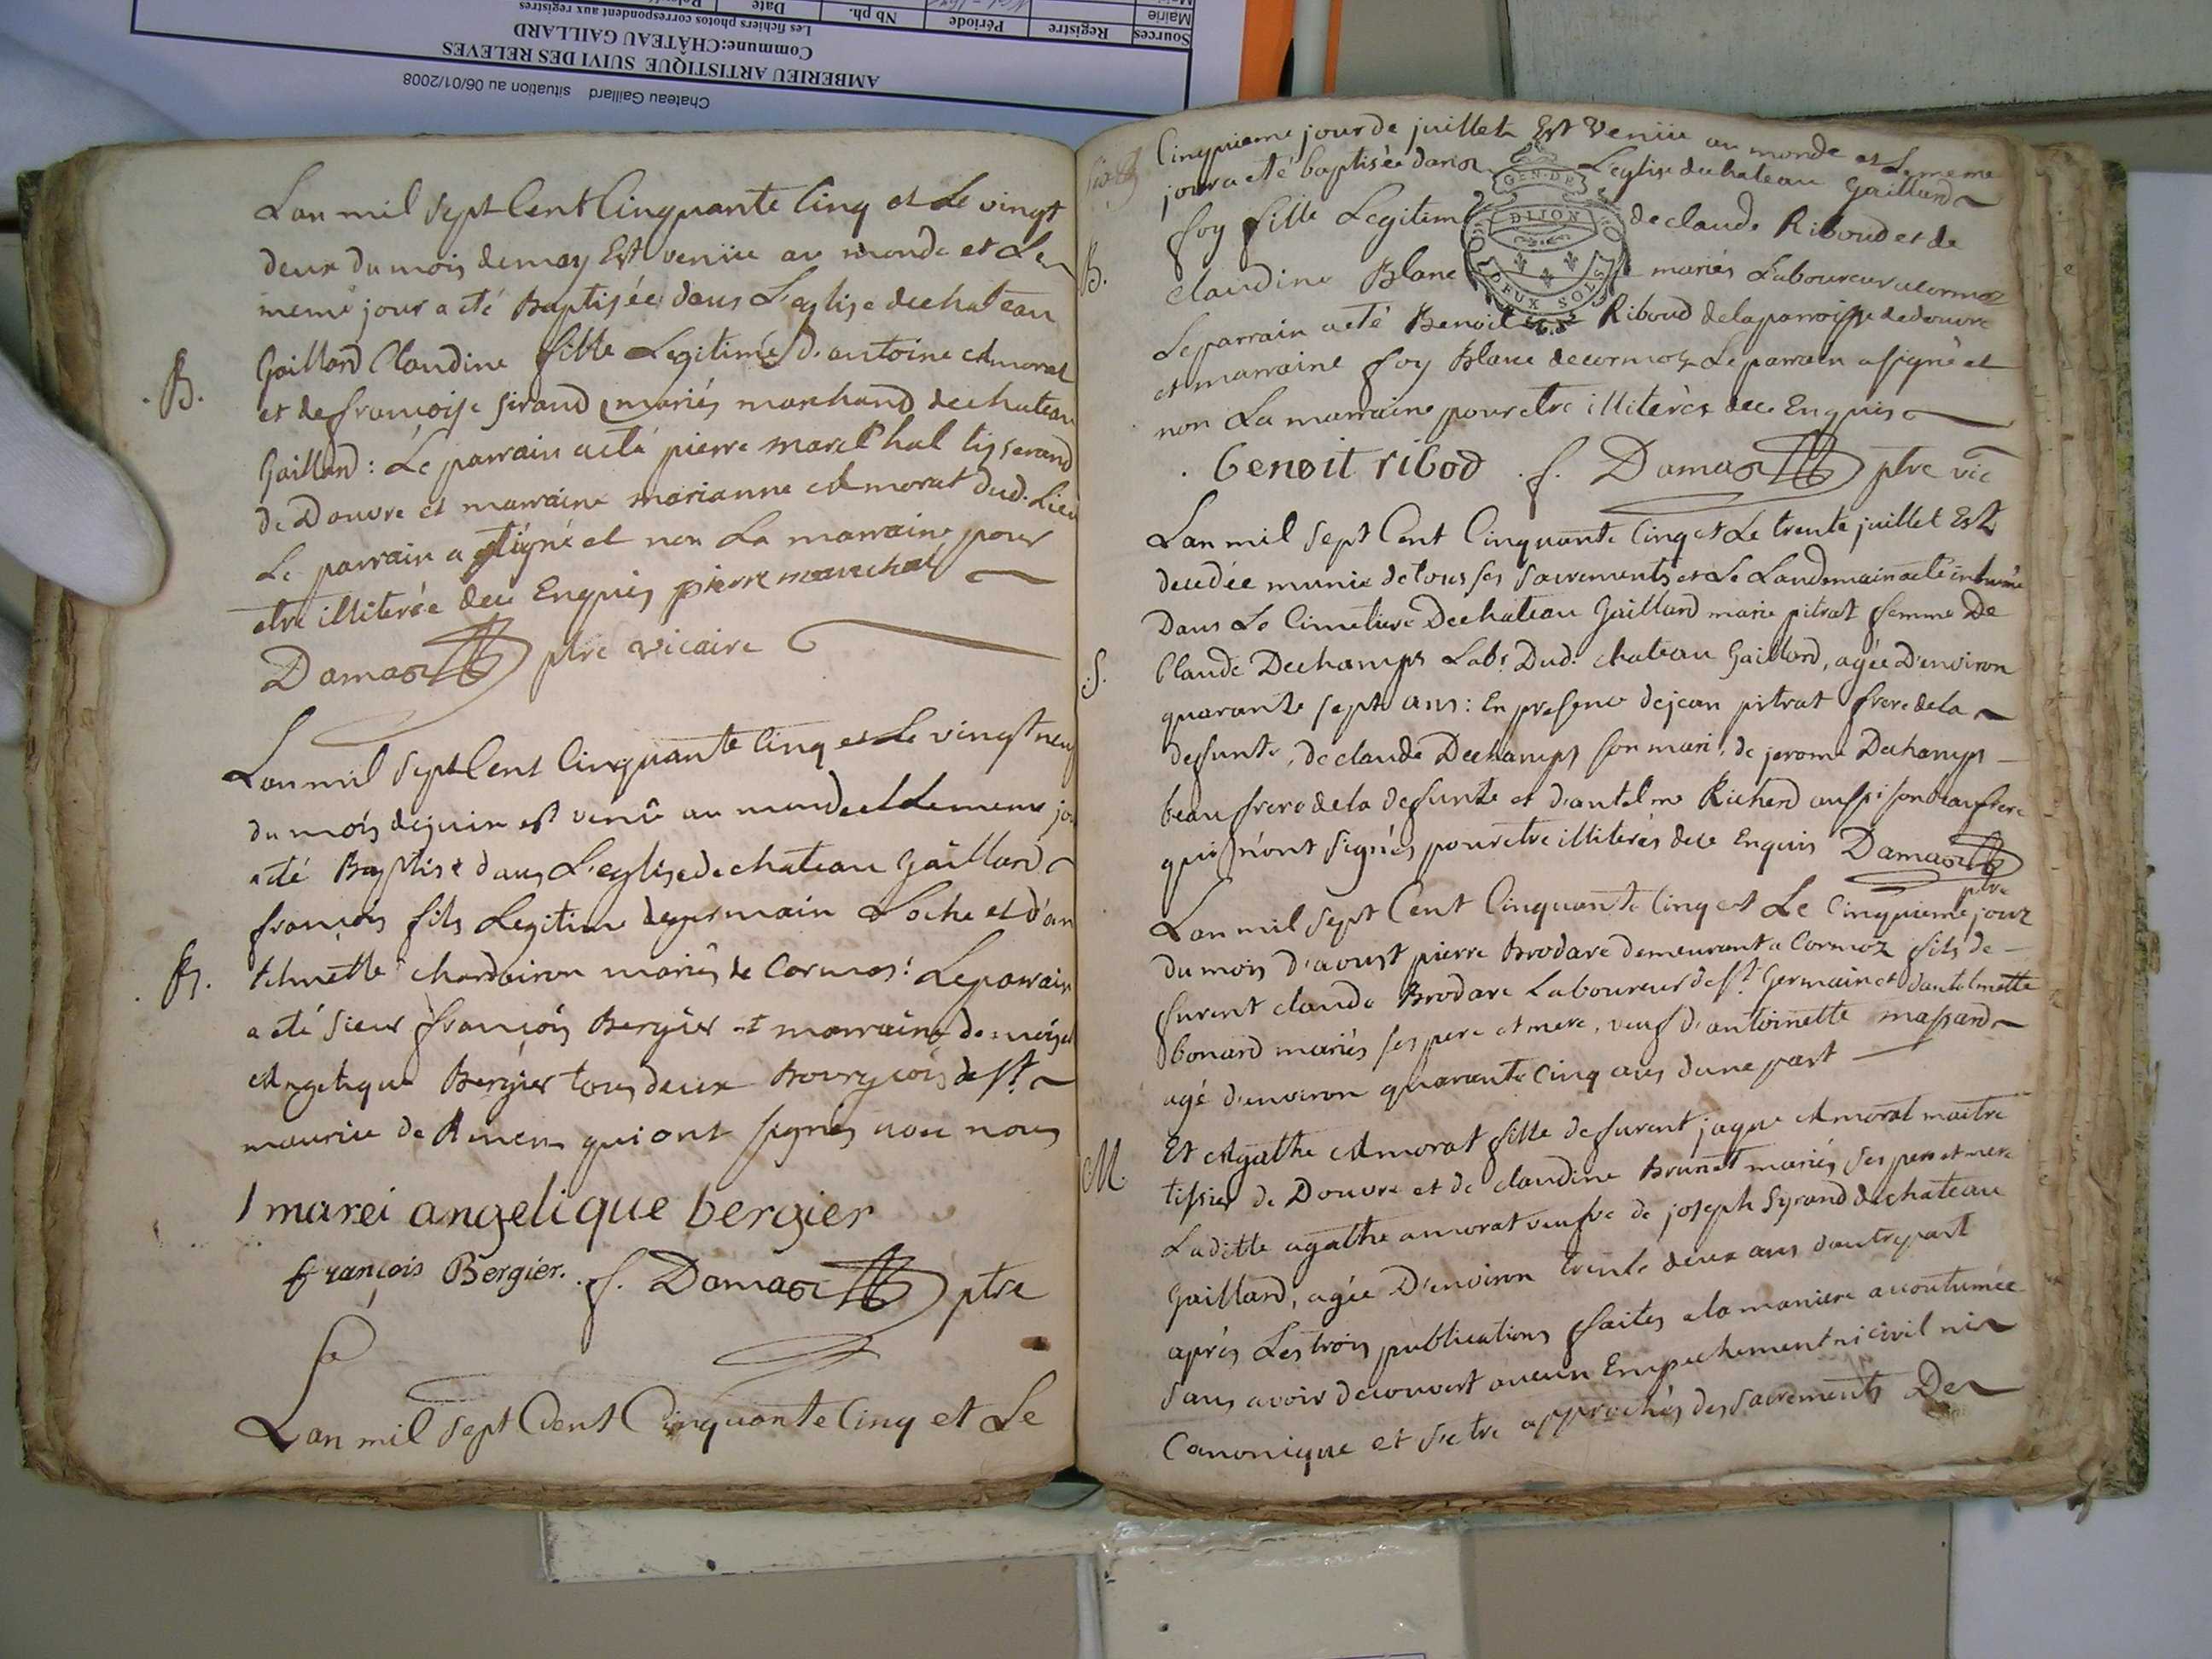 Chateau Gaillard situation au 06/01/2008
AMBERIEU ARTISTIQUE SUIVI DES RELEVES
Commune:CHÂTEAU GAILLARD
Les fichiers photos correspondent aux registres
Sources Registre Période Nb ph. Date
Mairie
Lan mil sept Cent Cinquante Cinq et Le vingt
deux du mois de may Est venüe au monde et Le
meme jour a eté Baptisée dans L'eglise de chateau
Gaillard Claudine fille Legitime d'antoine Amorat
B.
et de francoise sirand mariés marchand de chateau
Gaillard: Le parrain a eté pierre marechal tisserand
de Douvre et marraine marianne Amorat dud. Lieu
Le parrain a signé et non La marraine pour
etre illiterée dece Enquis pierre marechal
Damas ptre vicaire
Lan mil sept Cent Cinquante Cinq et Le vingt neuf
du mois de juin est venû au monde et Le meme jou
a eté Baptisé dans L'eglise de chateau Gaillard
francois fils Legitime de germain Loche et d'an
B.
telmette chardairon mariés de Cormos: Le parrain
a eté sieur francois Bergier et marraine demoisel
Angelique Bergier tous deux Bourgeois de st.
maurice de Remens qui ont signés avec nous
marei angelique bergier
françois Bergier. f. Damas ptre
Lan mil sept Cent Cinquante Cinq et Le
Cinquieme jour de juillet Est Venüe au monde et Le meme
jour a eté baptisée dans L'eglise de chateau Gaillard
GEN. DE DIJON DEUX SOLS
foy fille Legitime de claude Riboud et de
B.
claudine Blanc mariés Laboureur a cormoz
Le parrain a eté Benoit Riboud de la parroisse de douvre
et marraine foy Blanc de cormoz Le parrain a signé et
non La marraine pour etre illiterée dece Enquis
benoit ribod f. Damas ptre vic
Lan mil sept Cent Cinquante Cinq et Le trente juillet Est
decedée munie de tous ses sacrements et Le Landemain a eté inhumée
Dans Le Cimetiere De chateau Gaillard marie pitrat femme De
S.
Claude Dechamps Labr. Dud. chateau Gaillard, agée D'environ
quarante sept ans: En presence de jean pitrat frere de la
defunte, de claude Dechamps son mari, de jerome Dechamps
beau frere de la defunte et d'antelme Richerd aussi son beau frere
qui n'ont signés pour etre illiterés dece Enquis Damas
ptre
Lan mil sept Cent Cinquante Cinq et Le Cinquieme jour
du mois d'aoust pierre Brodare demeurant a Cormoz fils de
furent claude Brodare Laboureur de st. Germain et d'antelmette
bonard mariés ses pere et mere, veuf d'antoinette massard
agé d'environ quarante cinq ans dune part
Et Agathe Amorat fille de furent jaque Amorat maitre
M.
tissier de Douvre et de claudine Brunet mariés ses pere et mere
Laditte agathe amorat veufve de joseph Syrand de chateau
Gaillard, agée D'environ trente deux ans d'autre part
après Les trois publications faites a la maniere accoutumée
sans avoir decouvert aucun Empechement ni civil ni
Canonique et s'etre approchés des sacrements De